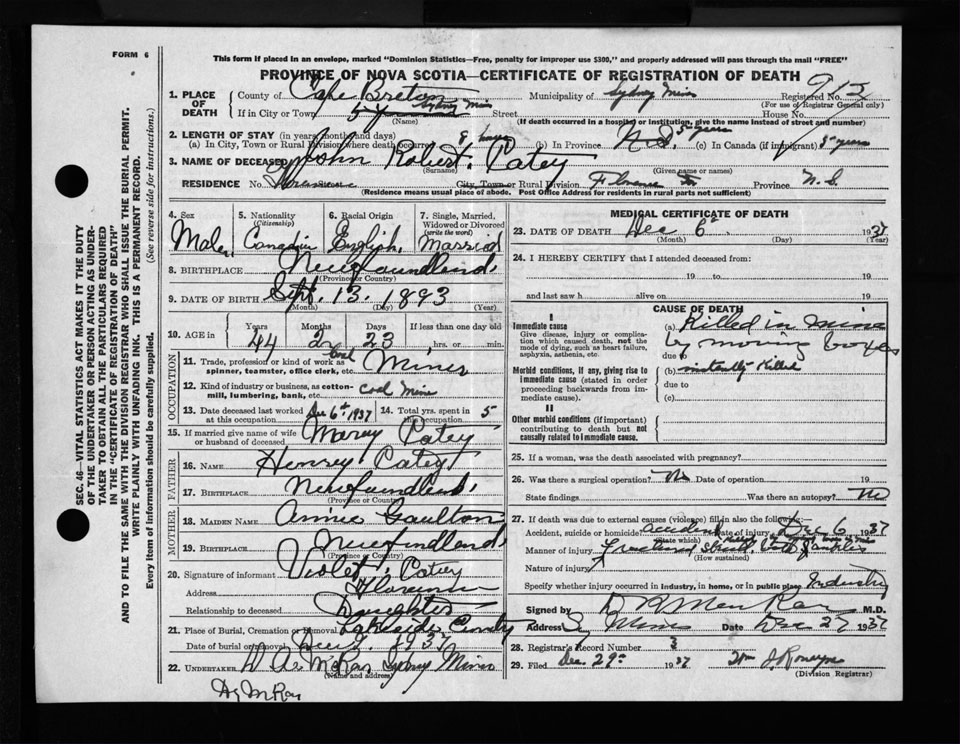 FORM 6
This form if placed in an envelope, marked "Dominion Statistics—Free, penalty for improper use $300," and properly addressed will pass through the mail "FREE"
PROVINCE OF NOVA SCOTIA—CERTIFICATE OF REGISTRATION OF DEATH
1. PLACE OF DEATH County of Cape Breton Municipality of Sydney Mines Registered No.
(For use of Registrar General only)
If in City or Town Sydney Mines Street House No.
(Name) (If death occurred in a hospital or institution, give the name instead of street and number)
2. LENGTH OF STAY (in years, months and days)
(a) In City, Town or Rural Division where death occurred 8 hours (b) In Province N.S. 5 years (c) In Canada (if immigrant) 5 years
3. NAME OF DECEASED John Robert Patey
(Surname) (Given name or names)
RESIDENCE No. Florence City, Town or Rural Division Florence Province N.S.
(Residence means usual place of abode. Post Office Address for residents in rural parts not sufficient)
4. Sex Male
5. Nationality (Citizenship) Canadian
6. Racial Origin English
7. Single, Married, Widowed or Divorced (write the word) Married
8. BIRTHPLACE Newfoundland
(Province or Country)
9. DATE OF BIRTH Sept. 13. 1893
(Month) (Day) (Year)
10. AGE in Years Months Days If less than one day old
44 2 23 hrs. or min.
OCCUPATION
11. Trade, profession or kind of work as spinner, teamster, office clerk, etc. Coal Miner
12. Kind of industry or business, as cotton-mill, lumbering, bank, etc. Coal Mine
13. Date deceased last worked at this occupation Dec 6th 1937 14. Total yrs. spent in this occupation 5
15. If married give name of wife or husband of deceased Mary Patey
FATHER
16. NAME Henry Patey
17. BIRTHPLACE Newfoundland
(Province or Country)
MOTHER
18. MAIDEN NAME Annie Gaulton
19. BIRTHPLACE Newfoundland
(Province or Country)
20. Signature of informant Violet Patey
Address Florence
Relationship to deceased Daughter
21. Place of Burial, Cremation or Removal Lakeside Cemetry
Date of burial or removal
22. UNDERTAKER D A McKay Sydney Mines
(Name and address)
MEDICAL CERTIFICATE OF DEATH
23. DATE OF DEATH Dec 6th 1937
(Month) (Day) (Year)
24. I HEREBY CERTIFY that I attended deceased from:
19 to 19
and last saw h alive on 19
CAUSE OF DEATH
I
Immediate cause
Give disease, injury or complication which caused death, not the mode of dying, such as heart failure, asphyxia, asthenia, etc.
(a) Killed in Mine by moving boxes
due to
Morbid conditions, if any, giving rise to immediate cause (stated in order proceeding backwards from immediate cause).
(b) instantly Killed
due to
(c)
II
Other morbid conditions (if important) contributing to death but not causally related to immediate cause.
25. If a woman, was the death associated with pregnancy?
26. Was there a surgical operation? No Date of operation 19
State findings Was there an autopsy? No
27. If death was due to external causes (violence) fill in also the following:—
Accident, suicide or homicide? accident Date of injury Dec 6 1937
(State which)
Manner of injury Fractured Skull
(How sustained)
Nature of injury
Specify whether injury occurred in industry, in home, or in public place Industry
Signed by M.D.
Address Sy Mines Date Dec 27 1937
28. Registrar's Record Number 3
29. Filed Dec. 29th 1937
(Division Registrar)
SEC. 46—VITAL STATISTICS ACT MAKES IT THE DUTY OF THE UNDERTAKER OR PERSON ACTING AS UNDERTAKER TO OBTAIN ALL THE PARTICULARS REQUIRED IN THE "CERTIFICATE OF REGISTRATION OF DEATH"
AND TO FILE THE SAME WITH THE DIVISION REGISTRAR WHO SHALL ISSUE THE BURIAL PERMIT.
WRITE PLAINLY WITH UNFADING INK. THIS IS A PERMANENT RECORD.
Every item of information should be carefully supplied. (See reverse side for instructions.)